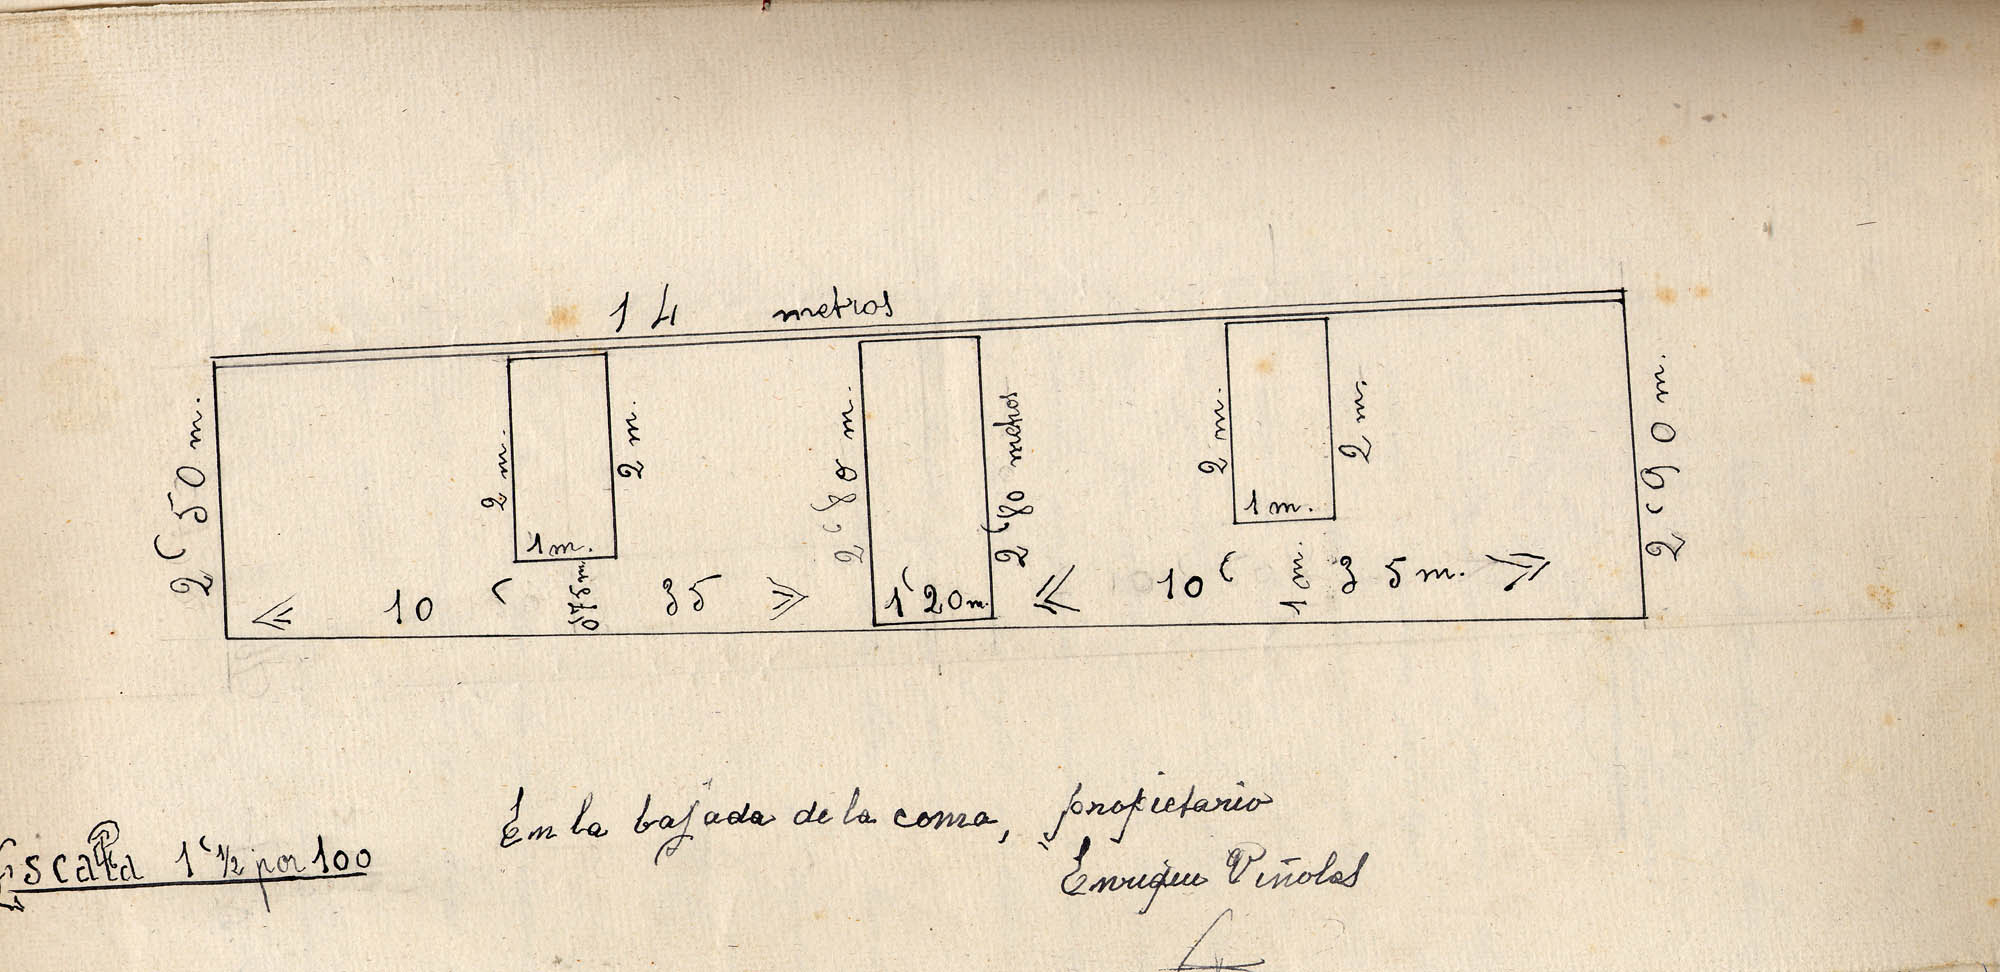 14 metros
2‘50 m.
2 m.
2 m.
1 m.
0‘75 m.
2‘80 m.
2‘80 metros
1‘20 m.
2 m.
2 m.
1 m.
1 m.
2‘90 m.
10‘35
10‘35 m.
En la bajada de la coma, propietario
Enrique Piñolas
Escala 1‘½ por 100